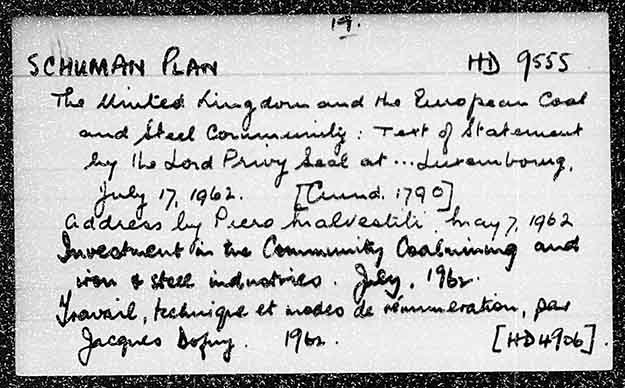 19.
SCHUMAN PLAN HD 9555
The United Kingdom and the European Coal
and Steel Community: Text of Statement
by the Lord Privy Seal at ... Luxembourg,
July 17, 1962. [Cmnd. 1790]
Address by Piero Malvestiti. May 7, 1962
Investment in the Community Coalmining and
iron & steel industries. July, 1962.
Travail, technique et modes de rémuneration, par
Jacques 1962. [HD4906].